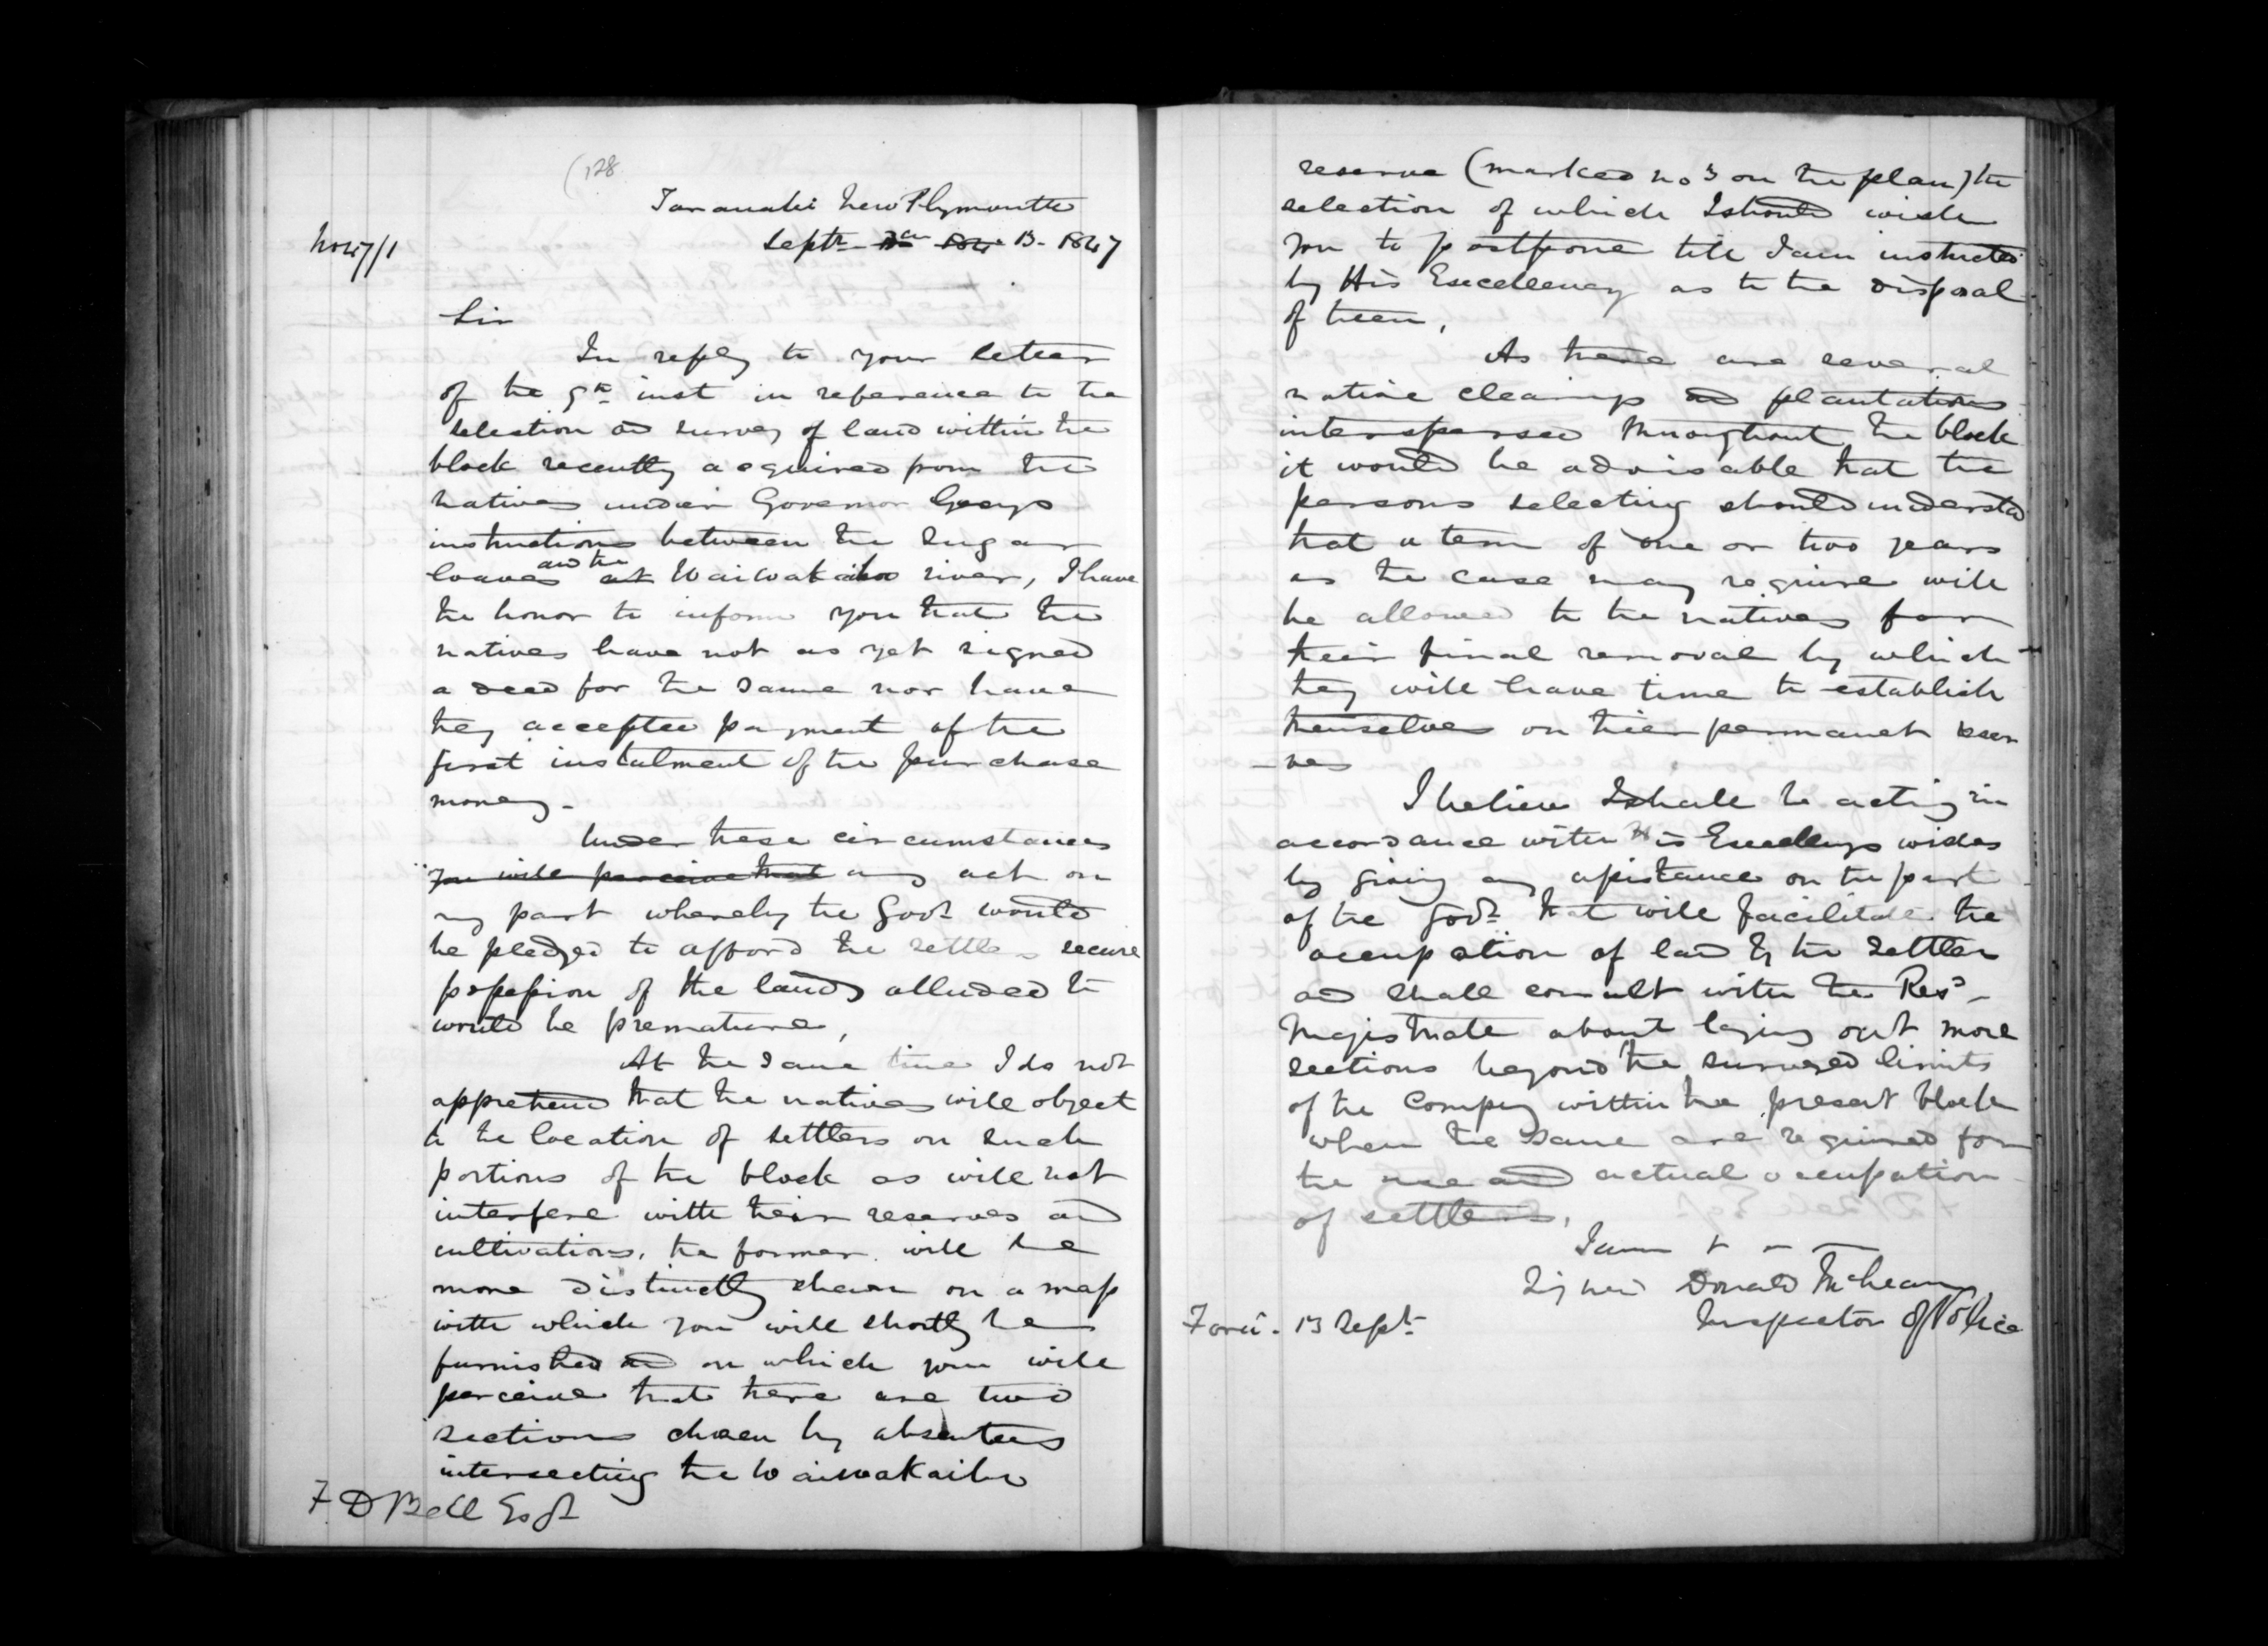 (128
Taranaki New Plymouth
Septr 13. 1847
No 47/1
Sir
In reply to your letter
of the 9th inst in reference to the
selection and survey of land within the
block recently acquired from the
natives under Governor Greys
instructions between the Sugar
loaves and the at Waiwakaiho river, I have
the honor to inform you that the
natives have not as yet signed
a deed for the same nor have
they accepted payment of the
first instalment of the purchase
money -
Under these circumstances
you will perceive that any act on
my part whereby the Govt would
be pledged to afford the settlers secure
possession of the lands alluded to
would be premature,
At the same time I do not
apprehend that the natives will object
to the location of settlers on such
portions of the block as will not
interfere with their reserves and
cultivations, the former will be
more distinctly shewn on a map
with which you will shortly be
furnished and on which you will
perceive that there are two
sections chosen by absentees
intersecting the Waiwakaiho
F D Bell Esqr
reserve (marked no 3 on the plan) the
selection of which I should wish
you to postpone till I am instructed
by His Excellency as to the disposal
of them,
As there are several
native clearings and plantations
interspersed throughout the block
it would be advisable that the
persons selecting should understand
that a term of one or two years
as the case may require will
be allowed to the natives for
their final removal by which
they will have time to establish
themselves on their permanent reser
-ves
I believe I shall be acting in
accordance with His Excellencys wishes
by giving any assistance on the part
of the Govt that will facilitate the
occupation of land by the settlers
and shall consult with the Resd
Magistrate about laying out more
sections beyond the surveyed limits
of the Company within the present block
when the same are required for
the use and actual occupation
of settlers,
I am + - -
Signed Donald McLean
Inspector of Police
Forwd. 13 Septr